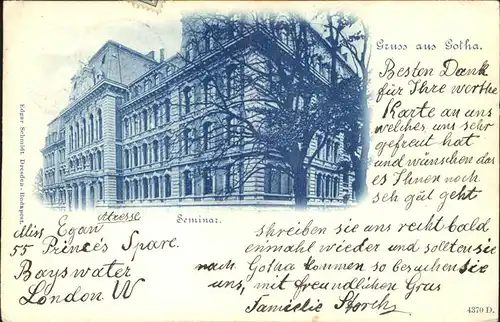 Gruss aus Gotha.
Beston Dank
für Ihre werthe
Karte an uns
welches uns sehr
gefreut hat
und wünschen das
es Ihnen noch
seh gut geht
Edgar Schmidt, Dresden-Budapest.
Seminar.
Adresse
Miss Egan
55 Princes Spare.
Bayswater
London W
shreiben sie uns recht bald
einmahl wieder und sollten sie
nach Gotha kommen so besuchen sie
uns, mit freundlichen Grus
Familie Storch
4370 D.